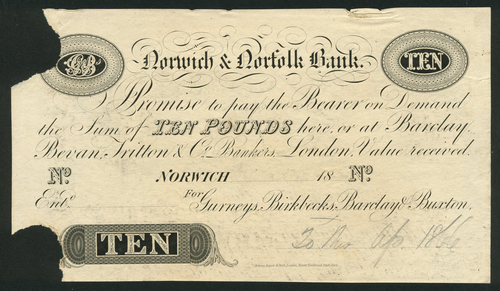 Norwich & Norfolk Bank.
TEN
I Promise to pay the Bearer on Demand
the Sum of TEN POUNDS here, or at Barclay,
Bevan, Tritton & Co. Bankers, London, Value received.
No. NORWICH 18 No.
Entd.
For Gurneys, Birkbecks, Barclay & Buxton.
TEN